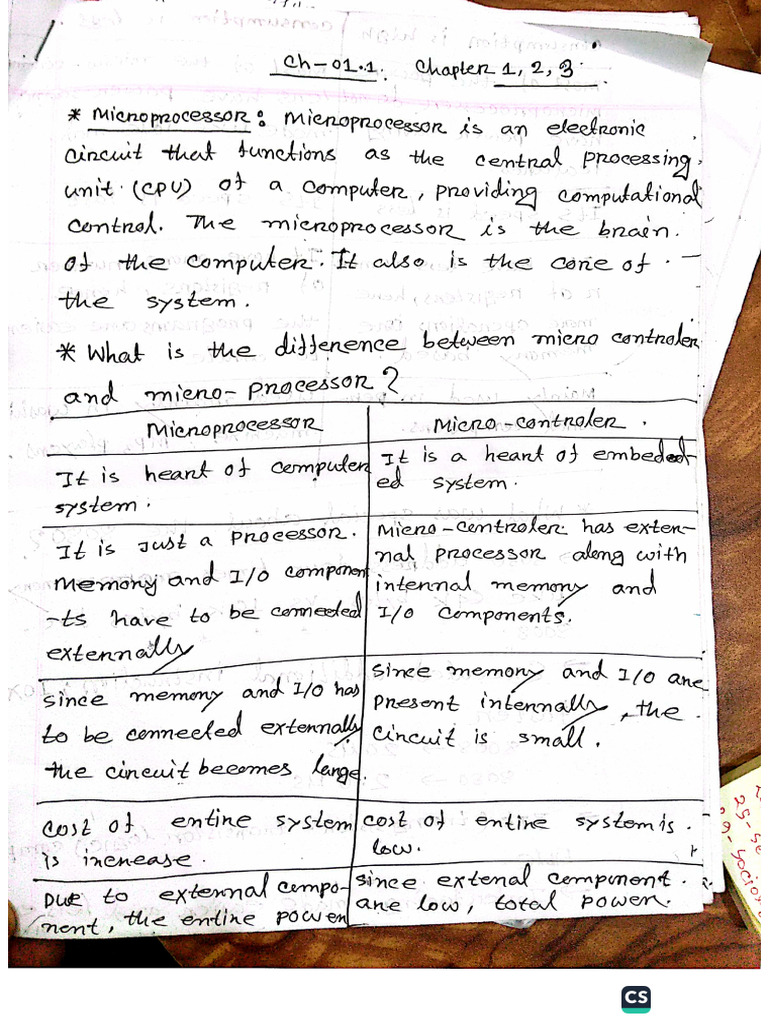 Ch-01.1 Chapter 1, 2, 3.
* Microprocessor: Microprocessor is an electronic
circuit that functions as the central processing
unit (CPU) of a computer, providing computational
control. The microprocessor is the brain.
of the computer. It also is the core of
the system.
* What is the difference between micro controler
and micro-processor?
Microprocessor
Micro-controler.
It is heart of computer
system.
It is a heart of embeded
ed system.
It is Just a processor.
Memory and I/O component
-ts have to be connected
externally
Micro-controler has exter-
nal processor along with
internal memory and
I/O components.
Since memory and I/O has
to be connected externally
the circuit becomes large.
Since memory and I/O are
present internally, the.
circuit is small.
Cost of entire system
is increase.
cost of entire system is.
low.
Due to external compo-
nent, the entire power
since extenal component.
are low, total power.
CS